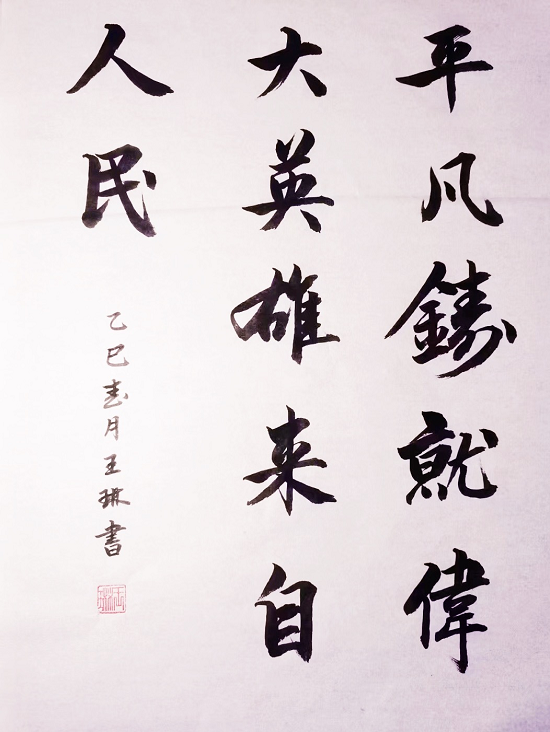 平凡鑄就偉
大英雄来自
人民
乙巳春月王琳書